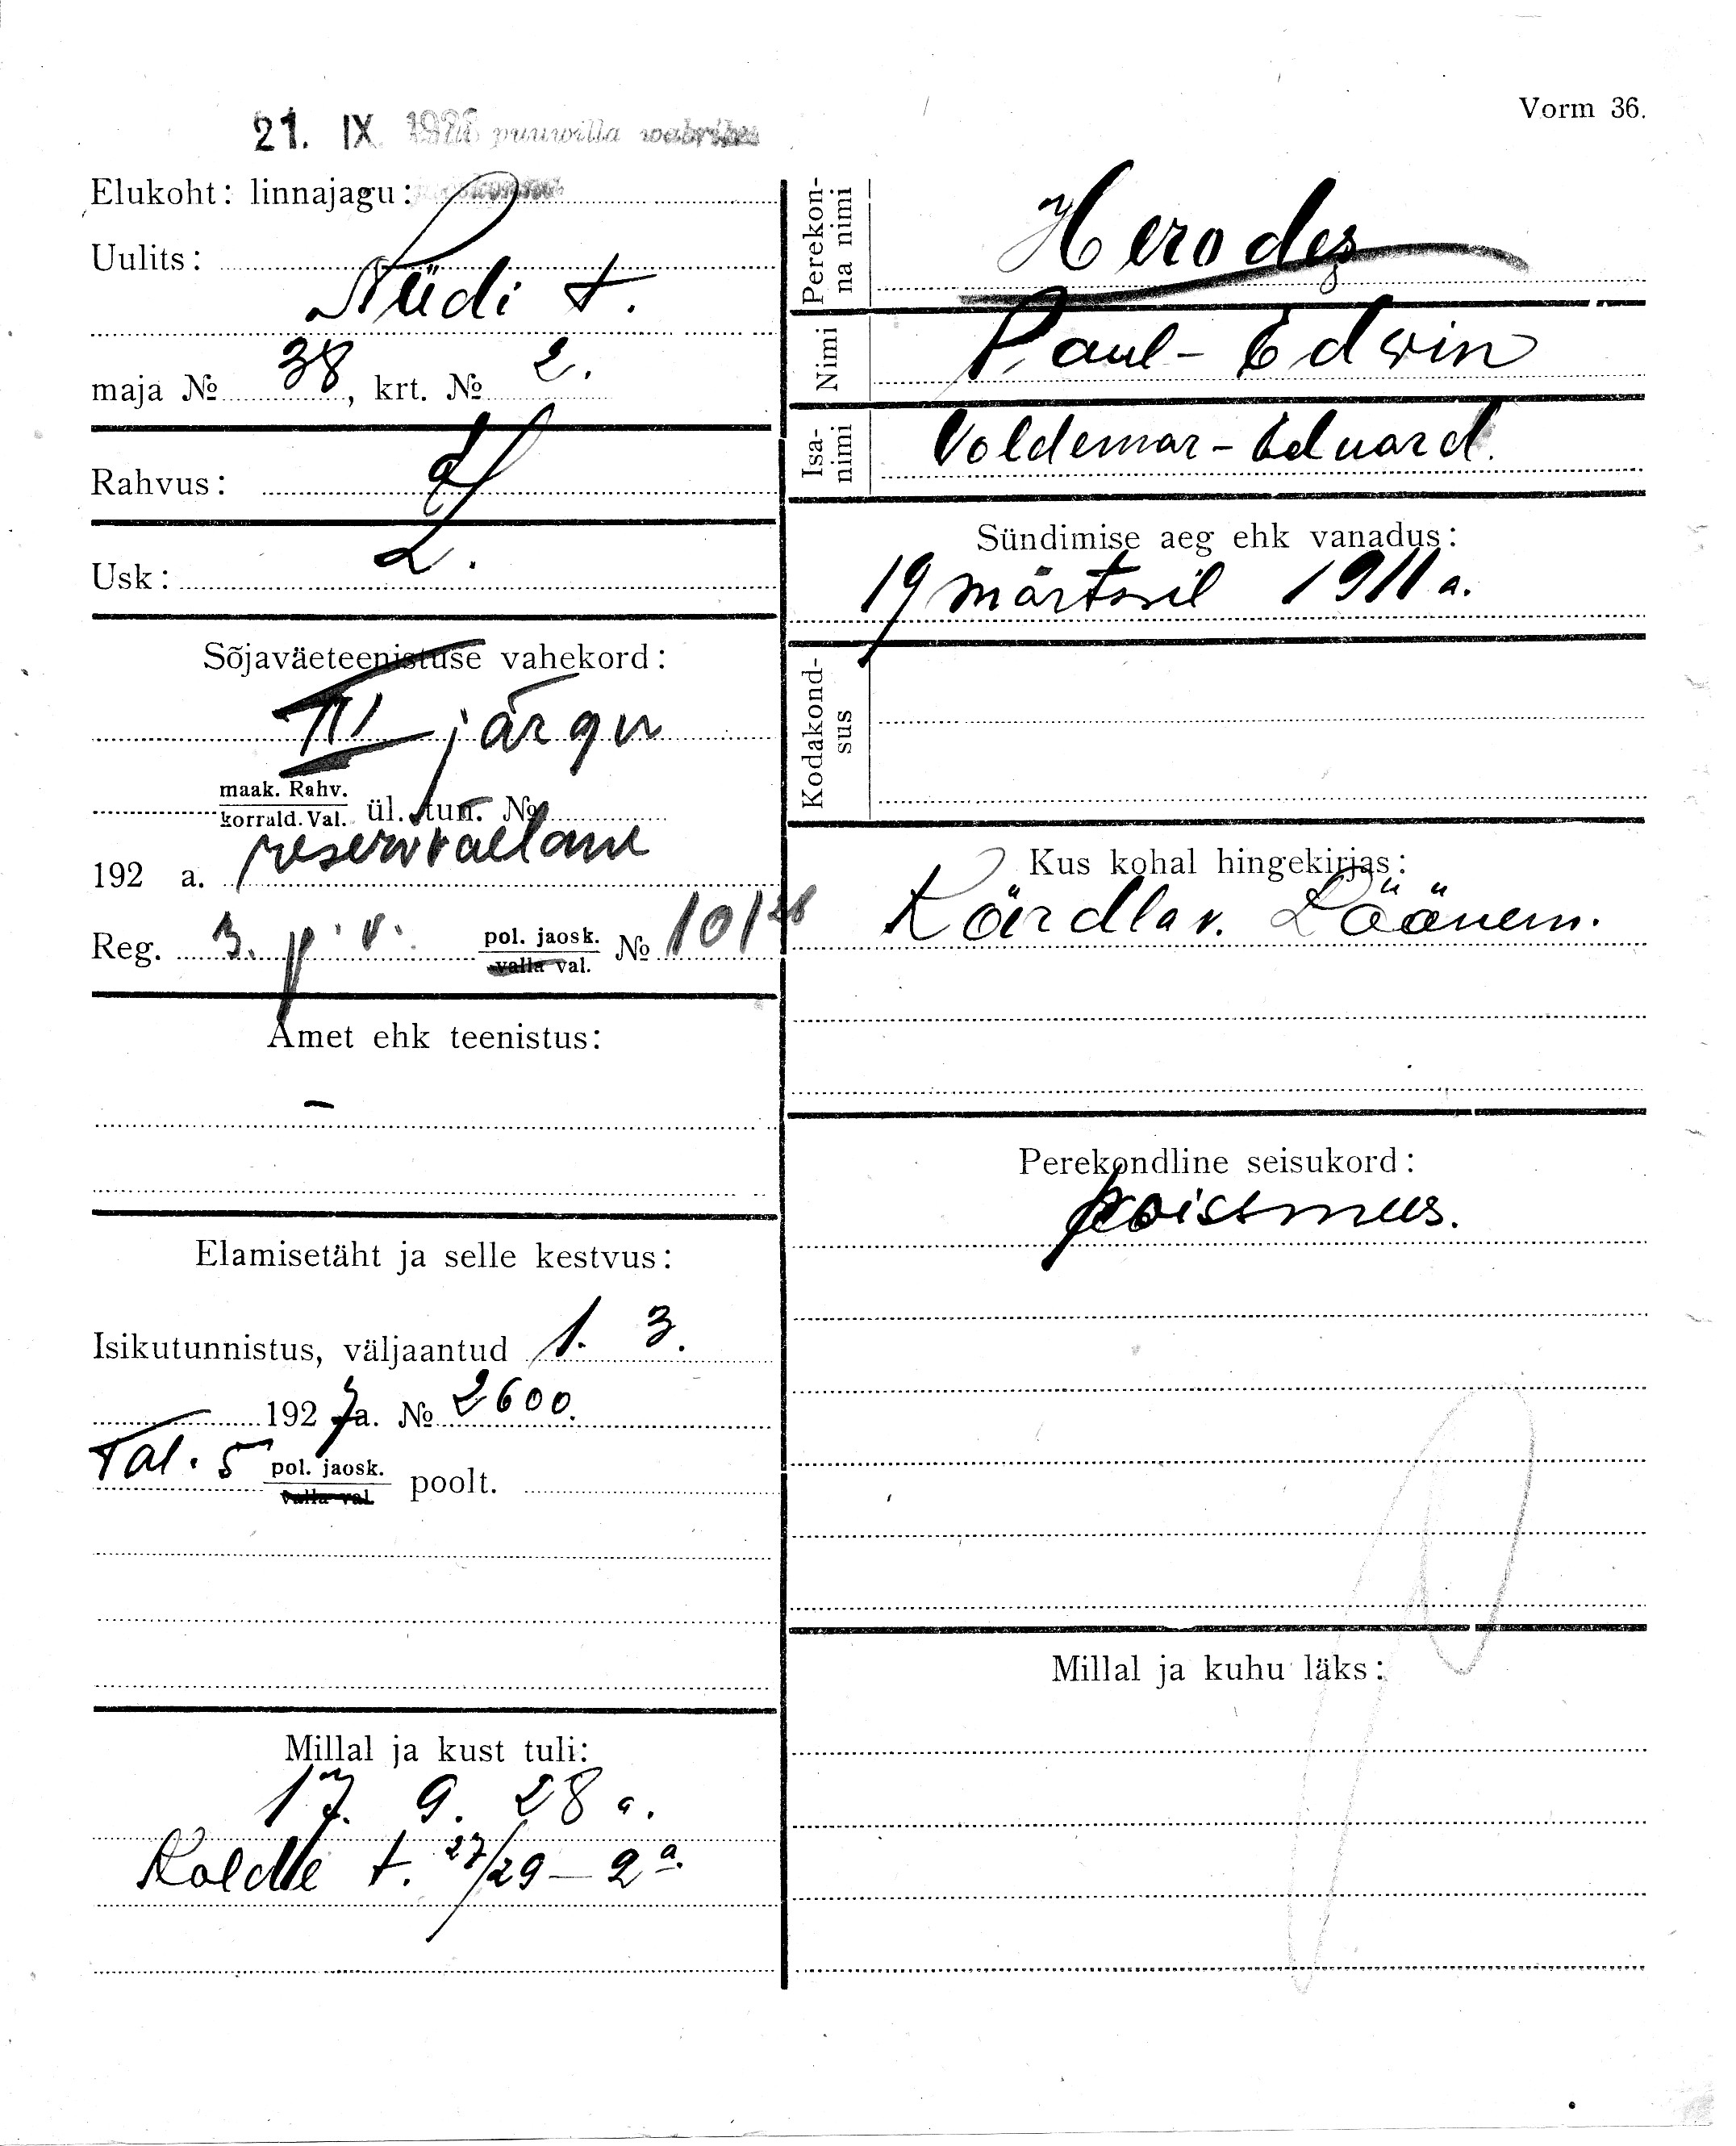 Vorm 36.
21. IX 1928 puuwilla wabriku
Elukoht: linnajagu: jaoskonnas
Uulits:
Südi t.
maja № 38, krt. № 2.
Rahvus:
Usk: L.
Sõjaväeteenistuse vahekord:
III järgu
maak. Rahv.
korrald. Val. ül. tun. №
reservväelane
192 a.
Reg. 3. p. v. pol. jaosk. № 101 28
valla val.
Amet ehk teenistus:
-
Elamisetäht ja selle kestvus:
Isikutunnistus, väljaantud 1. 3.
1927 a. № 2600.
Tal. 5 pol. jaosk. poolt.
valla val.
Millal ja kust tuli:
17. 9. 28 a.
Kolde t. 27/29 - 2 a.
Perekonna nimi
Herodes
Nimi
Paul - Edwin
Isanimi
Voldemar - Eduard.
Sündimise aeg ehk vanadus:
19 märtsil 1911 a.
Kodakondsus
Kus kohal hingekirjas:
Kärdla v. Läänem.
Perekondline seisukord:
poissmees.
Millal ja kuhu läks: